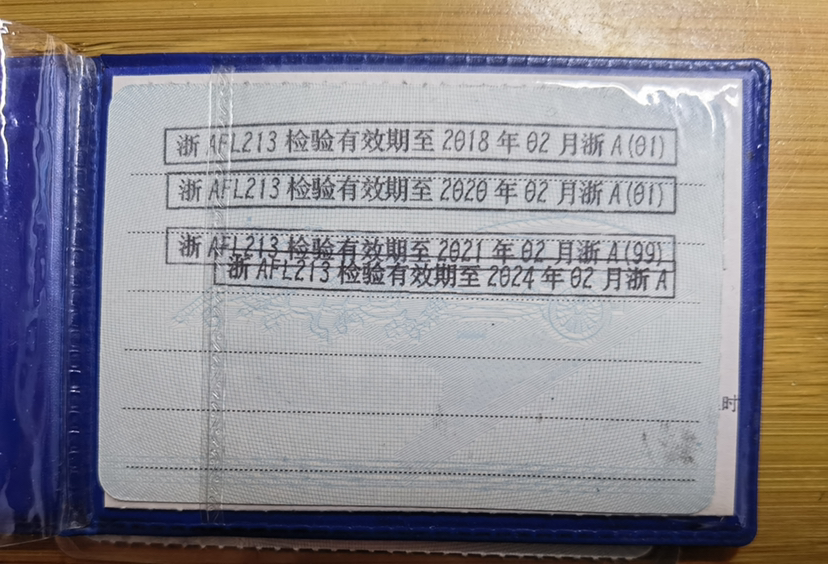 浙 AFL213 检验有效期至 2018 年 02 月浙 A(01)
浙 AFL213 检验有效期至 2020 年 02 月浙 A(01)
浙 AFL213 检验有效期至 2021 年 02 月浙 A(99)
浙 AFL213 检验有效期至 2024 年 02 月浙 A
时